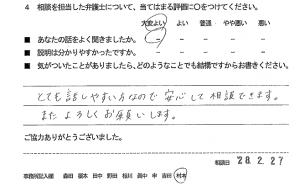 4 相談を担当した弁護士について、当てはまる評価に○をつけてください。
大変よい よい 普通 やや悪い 悪い
■ あなたの話をよく聞きましたか。
■ 説明は分かりやすかったですか。
■ 気がついたことがありましたら、どのようなことでも結構ですからお書きください。
とても話しやすい方なので安心して相談できます。
またよろしくお願いします。
ご協力ありがとうございました。
相談日 '28.2.27
事務所記入欄 森田 榎本 田中 野田 相川 眞中 申 吉田 村本